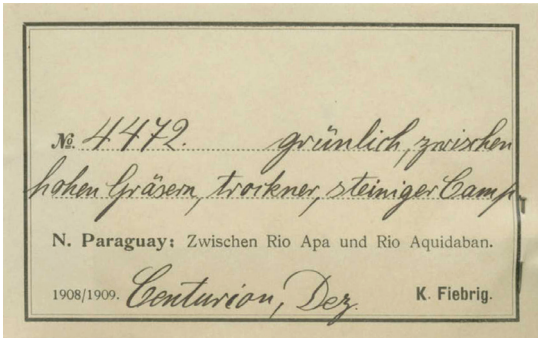 №. 4472. grünlich, zwischen
hohen Gräsern, trockner, steiniger Camp.
N. Paraguay: Zwischen Rio Apa und Rio Aquidaban.
1908/1909. Centurion, Dez. K. Fiebrig.